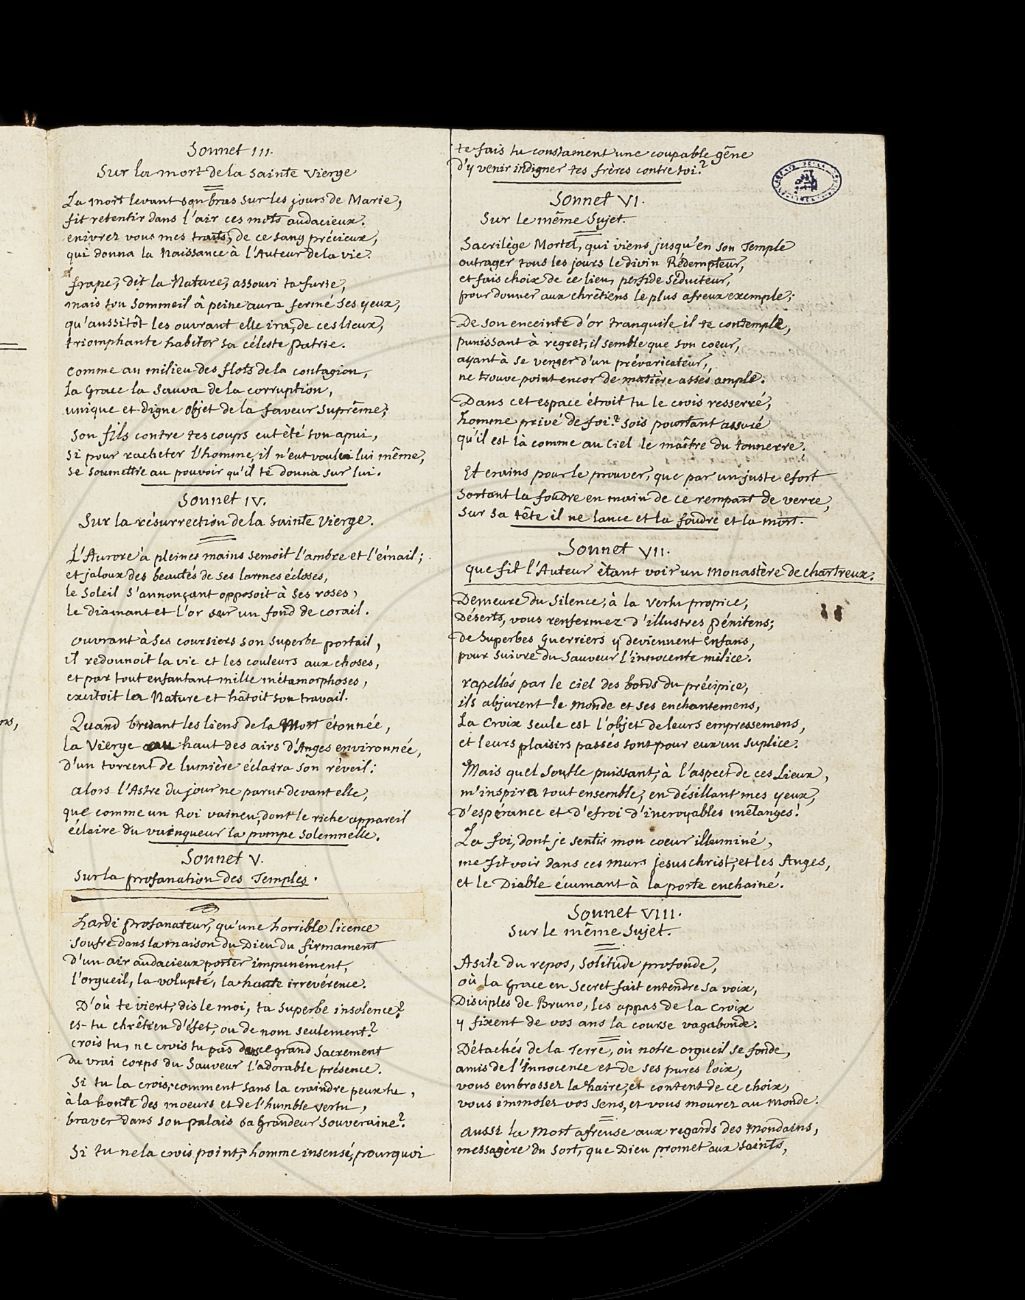 Sonnet III.
Sur la mort de la Sainte Vierge
La mort levant son bras sur les jours de Marie,
fit retentir dans l'air ces mots audacieux.
enivrez vous mes traits, de ce sang précieux,
qui donna la Naissance à l'Auteur de la vie.
frape, dit la Nature, assouvi ta furie,
mais ton Sommeil à peine aura fermé ses yeux,
qu'aussitôt les ouvrant elle ira, de ces lieux,
triomphante habiter sa céleste Patrie.
comme au milieu des flots de la contagion,
la Grace la Sauva de la corruption,
unique et digne objet de la faveur Suprême;
Son fils contre tes coups eut été ton apui,
Si pour racheter l'homme, il n'eut voulu lui même,
se soumettre au pouvoir qu'il te donna sur lui.
Sonnet IV.
Sur la résurrection de la Sainte Vierge.
L'Aurore à pleines mains semoit l'ambre et l'émail;
et jaloux des beautés de ses larmes écloses,
le Soleil s'annonçant opposoit à ses roses,
le Diamant et l'or sur un fond de corail.
ouvrant à Ses coursiers son superbe portail,
il redonnoit la vie et les couleurs aux choses,
et par tout enfantant mille métamorphoses,
excitoit la Nature et hâtoit son travail.
Quand brisant les liens de la Mort étonnée,
la Vierge au haut des airs d'Anges environnée,
D'un torrent de lumière éclaira son réveil:
alors l'Astre du jour ne parut devant elle,
que comme un Roi vaincu, dont le riche appareil
éclaire du vainqueur la pompe Solemnelle.
Sonnet V.
Sur la profanation des Temples.
Hardi profanateur, qu'une horrible licence
Soufre dans la maison du Dieu du firmament
D'un air audacieux porter impunément,
l'orgueil, la volupté, la haute irrevérence.
D'où te vient, dis le moi, ta superbe insolence?
es-tu chrêtien d'éfet, ou de nom seulement?
crois tu, ne crois tu pas du ce grand Sacrement
du vrai corps du Sauveur l'adorable présence.
Si tu la crois, comment sans la craindre peux tu,
à la honte des moeurs et de l'humble vertu,
braver dans son palais sa grandeur souveraine?
Si tu ne la crois point, homme insensé, pourquoi
te fais tu constament une coupable gêne
d'y venir indigner tes frères contre toi?
Sonnet VI.
Sur le même Sujet.
Sacrilège Mortel, qui viens jusqu'en son Temple
outrager tous les jours le divin Rédempteur,
et fais choix de ce lieu, perfide séducteur,
pour donner aux chrêtiens le plus afreux exemple;
De son enceinte d'or tranquile il te contemple,
punissant à regret, il semble que son coeur,
ayant à se venger d'un prévaricateur,
ne trouve point encor de matière asses ample.
Dans cet espace étroit tu le crois resserré,
homme privé de foi? sois pourtant assuré
qu'il est là comme au Ciel le maître du tonnerre.
Et crains pour le prouver, que par un juste efort
Sortant la foudre en main de ce rempart de verre,
Sur sa tête il ne lance et la foudre et la mort.
Sonnet VII.
que fit l'Auteur étant voir un Monastère de chartreux.
Demeure du Silence, à la vertu propice,
Déserts, vous renfermez d'illustres pénitens;
de Superbes guerriers y deviennent Enfans,
pour suivre du Sauveur l'innocente milice.
rapellés par le ciel des bords du précipice,
ils abjurent le monde et ses enchantemens,
La Croix seule est l'objet de leurs empressemens,
et leurs plaisirs passés sont pour eux un suplice.
Mais quel Soufle puissant, à l'aspect de ces Lieux,
m'inspira tout ensemble, en désillant mes yeux,
d'espérance et d'efroi d'incroyables mélanges!
La foi, dont je sentis mon coeur illuminé,
me fit voir dans ces murs Jesus christ, et les Anges,
et le Diable écumant à la porte enchainé.
Sonnet VIII.
Sur le même Sujet.
Asile du repos, Solitude profonde,
où la Grace en Secret fait entendre sa voix,
Disciples de Bruno, les appas de la Croix
y fixent de vos ans la course vagabonde.
Détachés de la Terre, où notre orgueil se fonde,
amis de l'Innocence et de ses pures loix,
vous embrassez la haire, et content de ce choix,
vous immolez vos sens, et vous mourez au Monde.
aussi la Mort afreuse aux regards des Mondains,
messagère du sort, que Dieu promet aux saints,